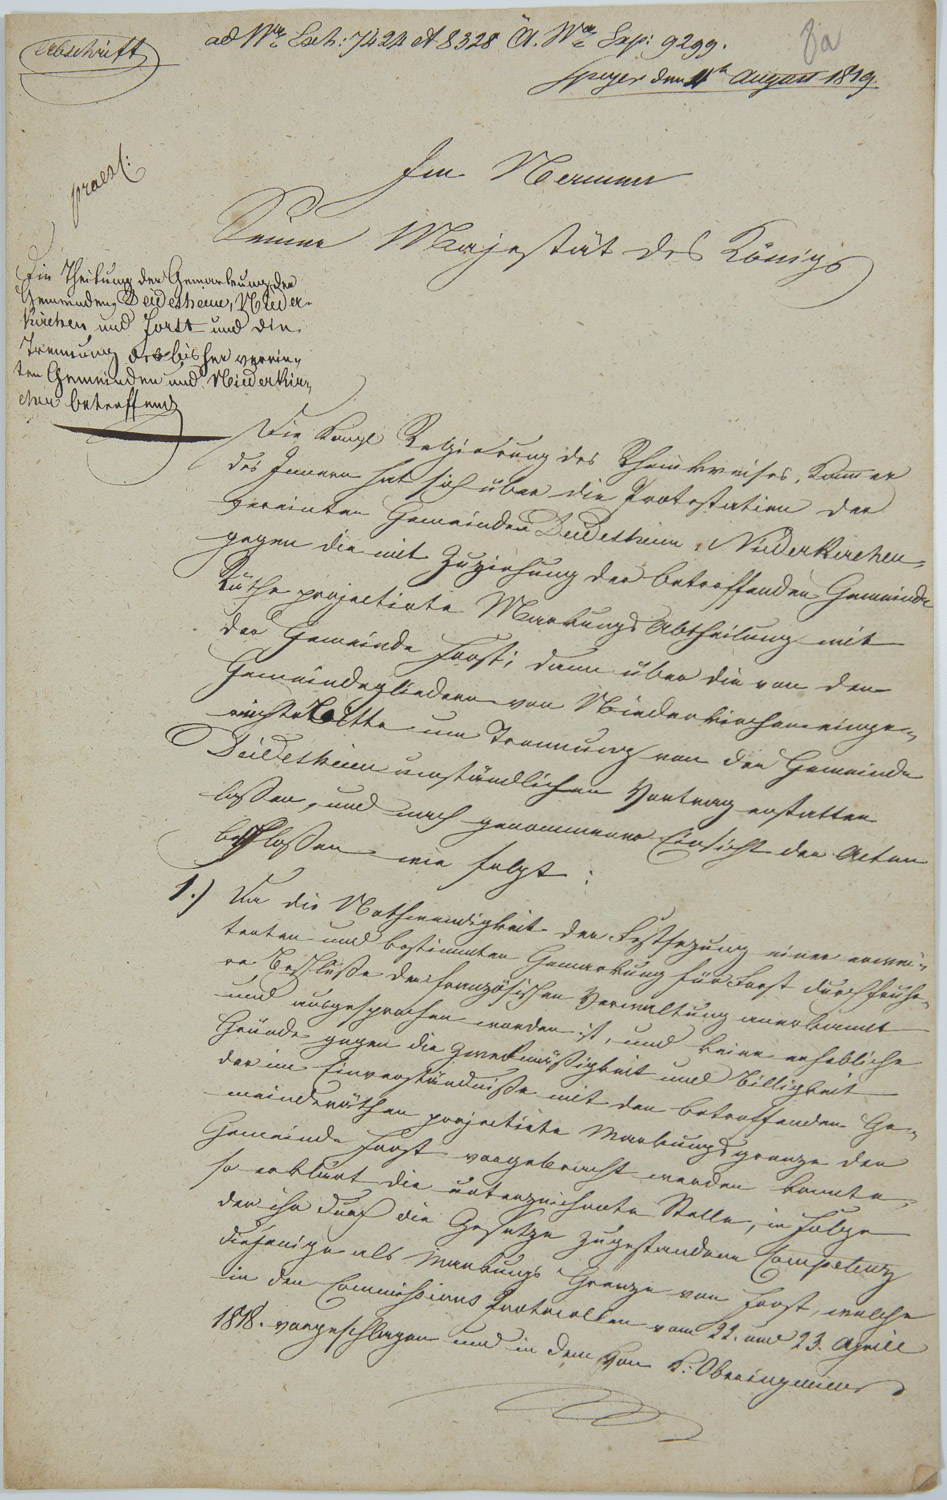 Abschrift
ad Nr. Exh: 7424 et 8328 A. Nr. Exp: 9299.
8a
Speyer den 4ten August 1819.
praes:
Im Namen
Seiner Majestät des Königs
Die Theilung der Gemarkung der
Gemeinden Deidesheim, Nieder-
kirchen und Forst und die
Trennung der bisher verein-
ten Gemeinden und Niederkir-
chen betreffend
Die Königl Regierung des Rheinkreises, Kammer
des Innern hat sich über die Protestation der
vereinten Gemeinden Deidesheim, Niederkirchen,
gegen die mit Zuziehung der betreffenden Gemeinde
Räthe projectirte Markungs Abtheilung mit
der Gemeinde Forst; dann über die von den
Gemeindegliedern von Niederkirchen einge-
reichte Bitte um Trennung von der Gemeinde
Deidesheim umständlichen Vortrag erstatten
lassen, und nach genommener Einsicht der Acten
beschlossen wie folgt:
1.) Da die Nothwendigkeit der Festsezung einer erwei-
terten und bestimmten Gemarkung für Forst durch frühe-
re Beschlüße der französischen Verwaltung anerkannt
und ausgesprochen worden ist, und keine erhebliche
Gründe gegen die Zweckmäßigkeit und Billigkeit
der im Einverständniße mit den betreffenden Ge-
meinderäthen projectirte Markungsgrenze der
Gemeinde Forst vorgebracht werden konnte,
so erklärt die unterzeichnete Stelle, in Folge
der ihr durch die Gesetze zugestandene Competenz
diejenige als Markungs Grenze von Forst, welche
in den Commissions Protocollen vom 22. und 23. April
1818. vorgeschlagen und in dem vom K: Oberingenieur